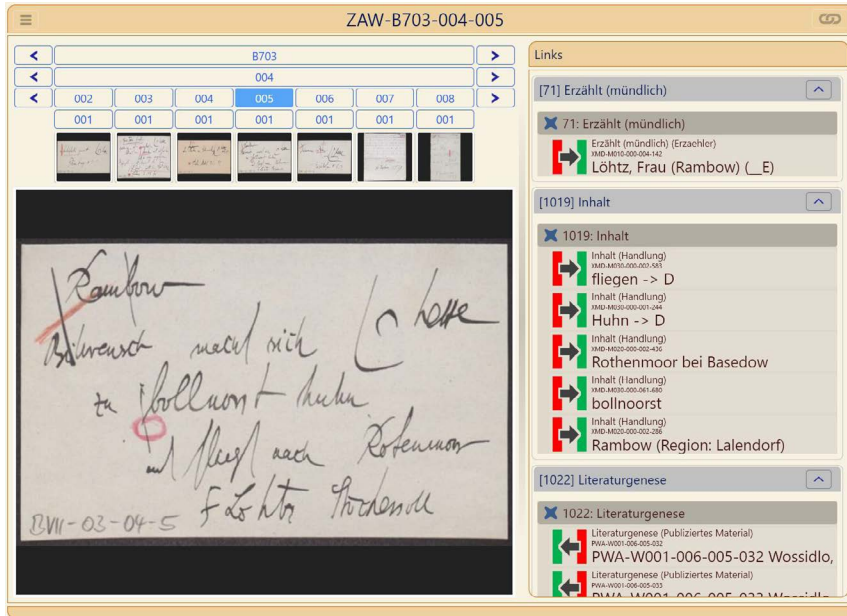 ZAW-B703-004-005
B703
004
002 003 004 005 006 007 008
001 001 001 001 001 001 001
Rambow
Hexe
macht sich
zu bollnorst huhn
und fliegt nach Rotenmoor
F Löhtz
BVII-03-04-5
Links
[71] Erzählt (mündlich)
71: Erzählt (mündlich)
Erzählt (mündlich) (Erzaehler)
XMD-M010-000-004-142
Löhtz, Frau (Rambow) (__E)
[1019] Inhalt
1019: Inhalt
Inhalt (Handlung)
XMD-M030-000-002-583
fliegen -> D
Inhalt (Handlung)
XMD-M030-000-001-244
Huhn -> D
Inhalt (Handlung)
XMD-M020-000-002-436
Rothenmoor bei Basedow
Inhalt (Handlung)
XMD-M030-000-061-680
bollnoorst
Inhalt (Handlung)
XMD-M020-000-002-286
Rambow (Region: Lalendorf)
[1022] Literaturgenese
1022: Literaturgenese
Literaturgenese (Publiziertes Material)
PWA-W001-006-005-032
PWA-W001-006-005-032 Wossidlo,
Literaturgenese (Publiziertes Material)
PWA-W001-006-005-033
PWA-W001-006-005-033 Wossidlo